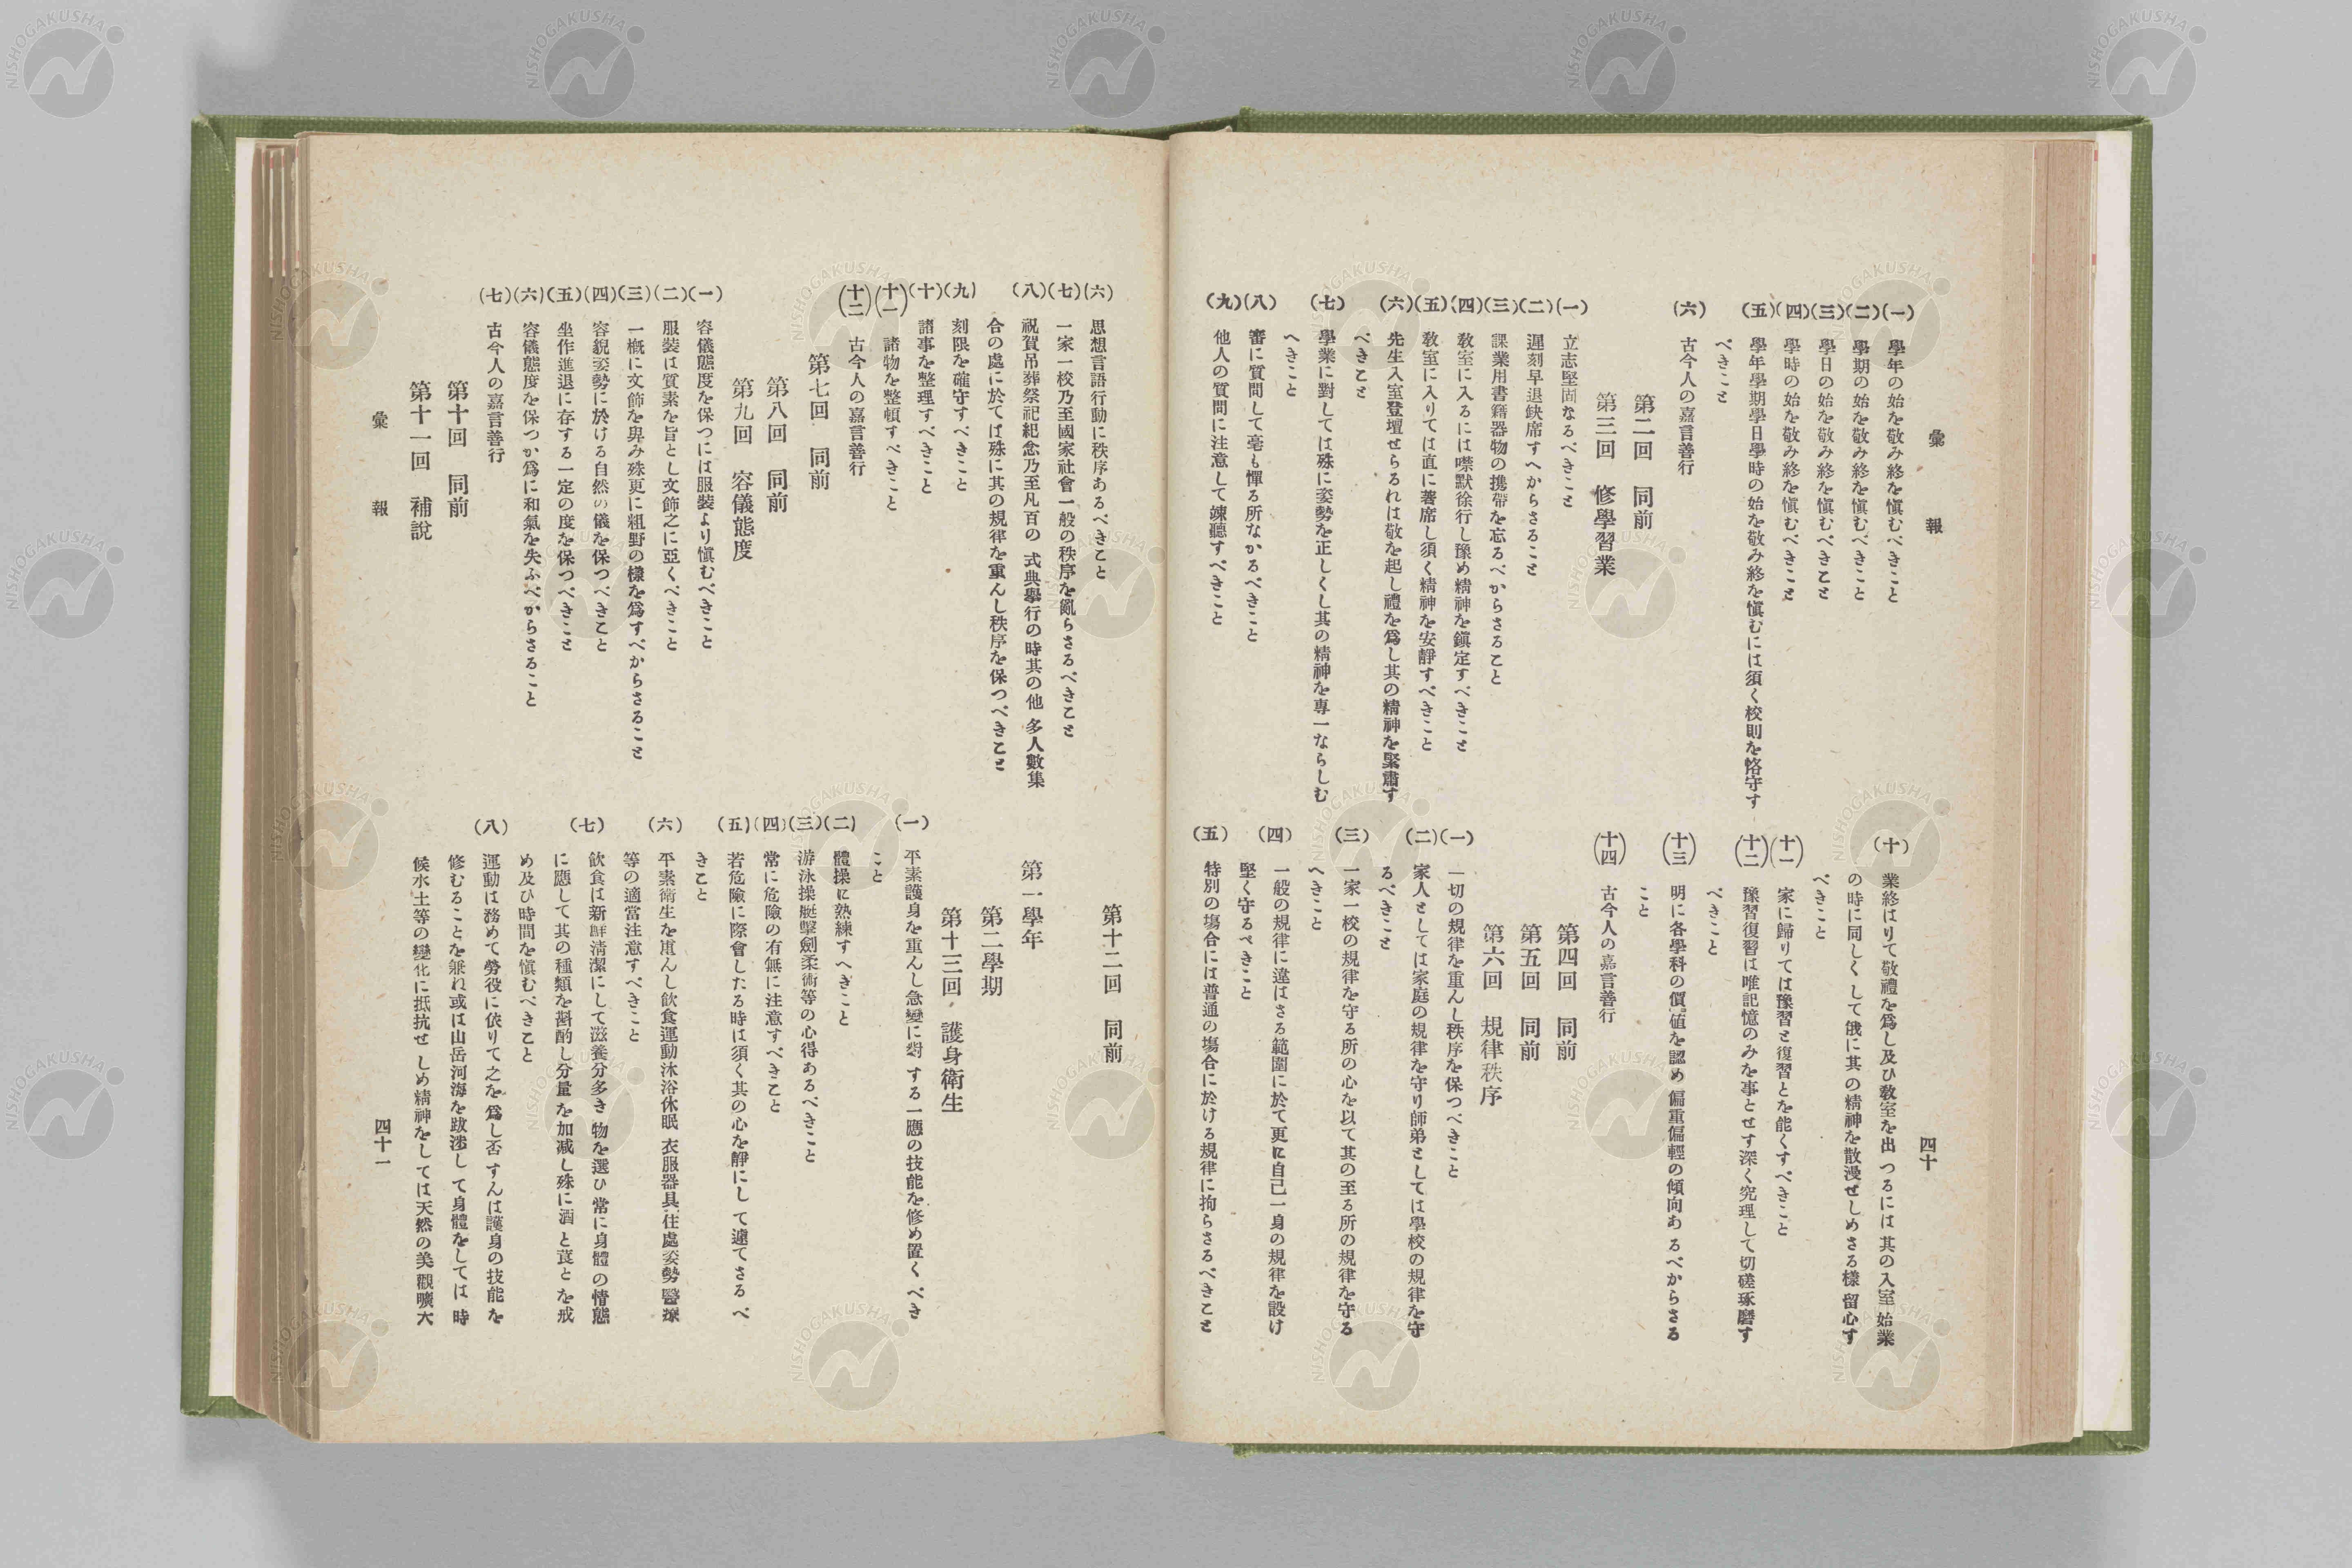 彙報
四十
(一)學年の始を敬み終を愼むべきこと
(二)學期の始を敬み終を愼むべきこと
(三)學日の始を敬み終を愼むべきこと
(四)學時の始を敬み終を愼むべきこと
(五)學年學期學日學時の始を敬み終を愼むには須く校則を恪守す
べきこと
(六)古今人の嘉言善行
第二回 同前
第三回 修學習業
(一)立志堅固なるべきこと
(二)遲刻早退缺席すへからさること
(三)課業用書籍器物の携帶を忘るべからさること
(四)敎室に入るには噤默徐行し豫め精神を鎭定すべきこと
(五)敎室に入りては直に著席し須く精神を安靜すべきこと
(六)先生入室登壇せらるれは敬を起し禮を爲し其の精神を緊肅す
べきこと
(七)學業に對しては殊に姿勢を正しくし其の精神を專一ならしむ
へきこと
(八)審に質問して毫も憚る所なかるべきこと
(九)他人の質問に注意して竦聽すべきこと
(十)業終はりて敬禮を爲し及ひ敎室を出つるには其の入室始業
の時に同しくして俄に其の精神を散漫せしめさる樣留心す
べきこと
(十一)家に歸りては豫習と復習とを能くすべきこと
(十二)豫習復習は唯記憶のみを事とせす深く究理して切磋琢磨す
べきこと
(十三)明に各學科の價値を認め偏重偏輕の傾向あるべからさる
こと
(十四)古今人の嘉言善行
第四回 同前
第五回 同前
第六回 規律秩序
(一)一切の規律を重んし秩序を保つべきこと
(二)家人としては家庭の規律を守り師弟としては學校の規律を守
るべきこと
(三)一家一校の規律を守る所の心を以て其の至る所の規律を守る
へきこと
(四)一般の規律に違はさる範圍に於て更に自己一身の規律を設け
堅く守るべきこと
(五)特別の塲合には普通の塲合に於ける規律に拘らさるべきこと
(六)思想言語行動に秩序あるべきこと
(七)一家一校乃至國家社會一般の秩序を亂らさるべきこと
(八)祝賀吊葬祭祀紀念乃至凡百の式典擧行の時其の他多人數集
合の處に於ては殊に其の規律を重んし秩序を保つべきこと
(九)刻限を確守すべきこと
(十)諸事を整理すべきこと
(十一)諸物を整頓すべきこと
(十二)古今人の嘉言善行
第七回 同前
第八回 同前
第九回 容儀態度
(一)容儀態度を保つには服裝より愼むべきこと
(二)服裝は質素を旨とし文飾之に亞くべきこと
(三)一概に文飾を卑み殊更に粗野の樣を爲すべからさること
(四)容貌姿勢に於ける自然の儀を保つべきこと
(五)坐作進退に存する一定の度を保つべきこと
(六)容儀態度を保つか爲に和氣を失ふべからさること
(七)古今人の嘉言善行
第十回 同前
第十一回 補說
第十二回 同前
第一學年
第二學期
第十三回 護身衞生
(一)平素護身を重んし急變に對する一應の技能を修め置くべき
こと
(二)體操に熟練すへきこと
(三)游泳操艇擊劍柔術等の心得あるべきこと
(四)常に危險の有無に注意すべきこと
(五)若危險に際會したる時は須く其の心を靜にして遽てさるべ
きこと
(六)平素衞生を重んし飮食運動沐浴休眠衣服器具住處姿勢醫療
等の適當注意すべきこと
(七)飮食は新鮮淸潔にして滋養分多き物を選ひ常に身體の情態
に應して其の種類を斟酌し分量を加減し殊に酒と莨とを戒
め及ひ時間を愼むべきこと
(八)運動は務めて勞役に依りて之を爲し否すんは護身の技能を
修むることを兼ね或は山岳河海を跋渉して身體をしては時
候水土等の變化に抵抗せしめ精神をしては天然の美觀曠大
彙報
四十一